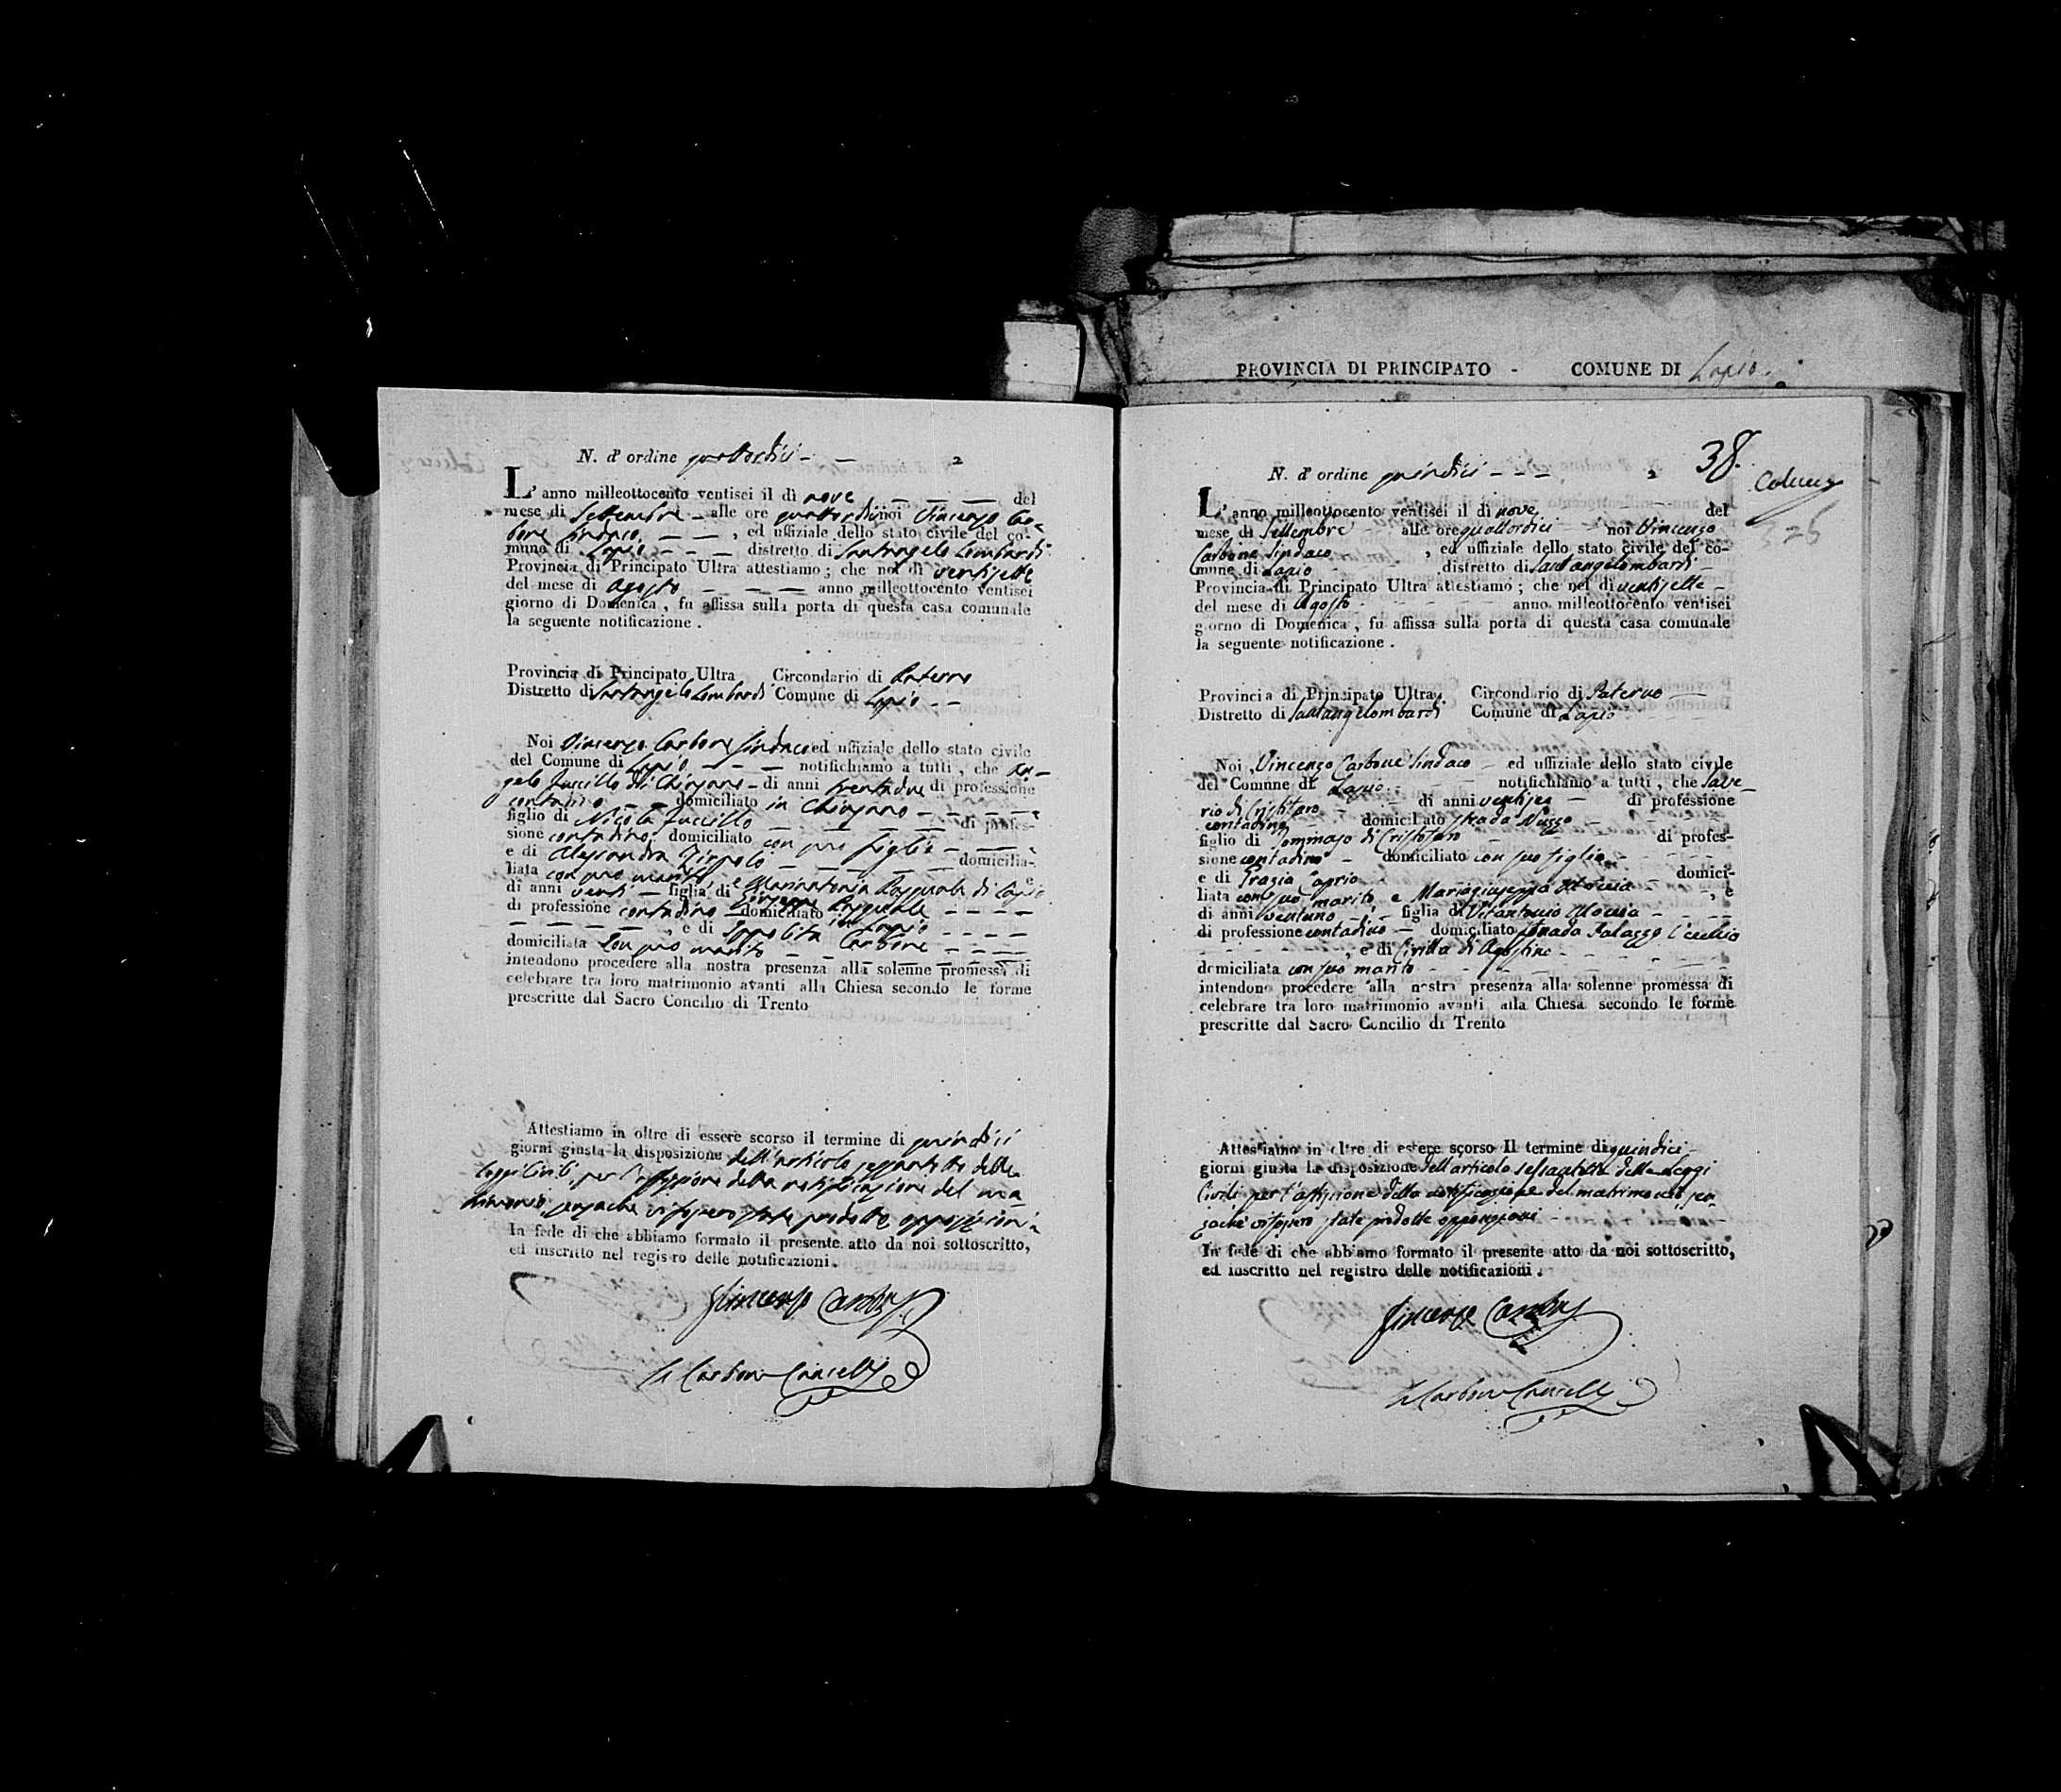 PROVINCIA DI PRINCIPATO - COMUNE DI Lapio.
N. d' ordine quattordici - — 2
L' anno milleottocento ventisei il dì nove — — — del
mese di Settembre - alle ore quattordici noi Vincenzo Car-
bone Sindaco — —, ed uffiziale dello stato civile del co-
mune di Lapio - — — distretto di Santangelo Lombardi
Provincia di Principato Ultra attestiamo; che nel dì ventisette
del mese di Agosto - — — — anno milleottocento ventisei
giorno di Domenica, fu affissa sulla porta di questa casa comunale
la seguente notificazione.
Provincia di Principato Ultra Circondario di Paterno
Distretto di Santangelo Lombardi Comune di Lapio - -
Noi Vincenzo Carbone Sindaco ed uffiziale dello stato civile
del Comune di Lapio - — — notifichiamo a tutti, che An-
gelo di - di anni trentadue di professione
contadino — — domiciliato in
figlio di Nicola — — — — di profes-
sione contadino domiciliato con suo figlio - — -
e di Alesandra Zirpolo - — — — — domicilia-
liata con suo marito, e Mariantonia Pasquale di Lapio
di anni venti — figlia di Giuseppe Pasquale - - - -
di professione contadino - domiciliato in Lapio - - - -
— — — — —, e di Ippolita Carbone - - - -
domiciliata con suo marito — — — — — —
intendono procedere alla nostra presenza alla solenne promessa di
celebrare tra loro matrimonio avanti alla Chiesa secondo le forme
prescritte dal Sacro Concilio di Trento
Attestiamo in oltre di essere scorso il termine di quindici
giorni giusta la disposizione dell'articolo sessantotto delle
Leggi Civili, per l'affissione della notificazione del ma
trimonio, senzache vi fossero state prodotte opposizioni
In fede di che abbiamo formato il presente atto da noi sottoscritto,
ed inscritto nel registro delle notificazioni.
Vincenzo Carbone
Carbone Cancell
38.
N. d' ordine quindici - - - 2
L' anno milleottocento ventisei il dì nove - - - del
mese di Settembre - alle ore quattordici - noi Vincenzo
Carbone Sindaco, ed uffiziale dello stato civile del co-
mune di Lapio - distretto di Santangelombardi -
Provincia di Principato Ultra attestiamo; che nel dì ventisette -
del mese di Agosto - - - - anno milleottocento ventisei
giorno di Domenica, fu affissa sulla porta di questa casa comunale
la seguente notificazione.
Provincia di Principato Ultra Circondario di Paterno
Distretto di Santangelombardi Comune di Lapio
Noi Vincenzo Carbone Sindaco - ed uffiziale dello stato civile
del Comune di Lapio - - notifichiamo a tutti, che Save-
rio di Cristofaro - di anni ventisei - di professione
contadino - domiciliato strada Nuzzo - -
figlio di Tommaso di Cristofaro - di profes-
sione contadino - domiciliato con suo figlio - - - -
e di Grazia Caprio - - - - domici-
liata con suo marito e Mariagiuseppa -, e
di anni ventuno - - figlia di Vitantonio - - -
di professione contadino - domiciliato strada Palazzo Vecchio
- - - - -, e di Civilla di Agostino - - - -
domiciliata con suo marito - - - - - -
intendono procedere alla nostra presenza alla solenne promessa di
celebrare tra loro matrimonio avanti alla Chiesa secondo le forme
prescritte dal Sacro Concilio di Trento
Attestiamo in oltre di essere scorso il termine di quindici
giorni giusta la disposizione dell'articolo sessantotto delle Leggi
Civili per l'affissione della notificazione del matrimonio sen
zache vi fossero state prodotte opposizioni
In fede di che abbiamo formato il presente atto da noi sottoscritto,
ed inscritto nel registro delle notificazioni.
Vincenzo Carbone
Carbone Cancell